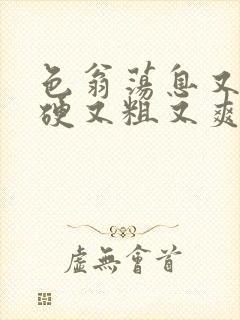 色翁荡息又
硬又粗又爽
虚無會首